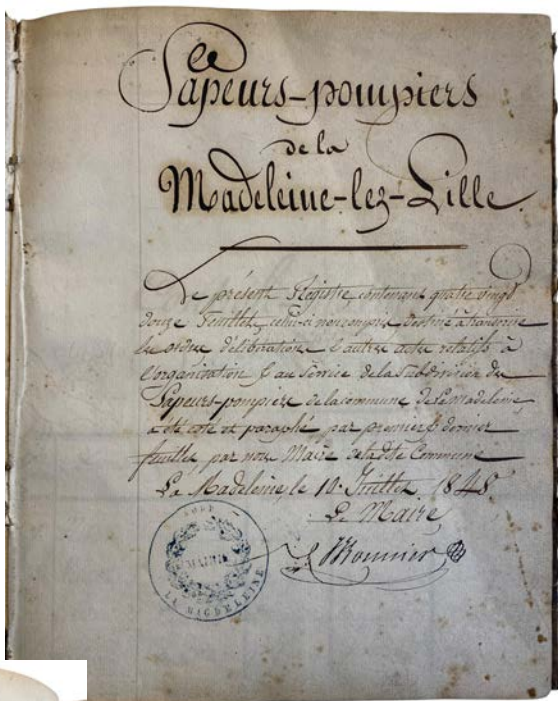 Sapeurs-pompiers
de la
Madeleine-lez-Lille.
Le présent Registre contenant quatre vingt
douze Feuillets, celui-ci non compris, destiné à transcrire
les ordres délibérations & autres actes relatifs à
l'organisation & au Service de la Subdivision des
Sapeurs-pompiers de la commune de La Madeleine,
a été coté et paraphé par premier & dernier
feuillet par nous Maire de ladite Commune.
La Madeleine, le 10 Juillet 1848.
Le Maire,
NORD
MAIRIE
LA MAGDELEINE